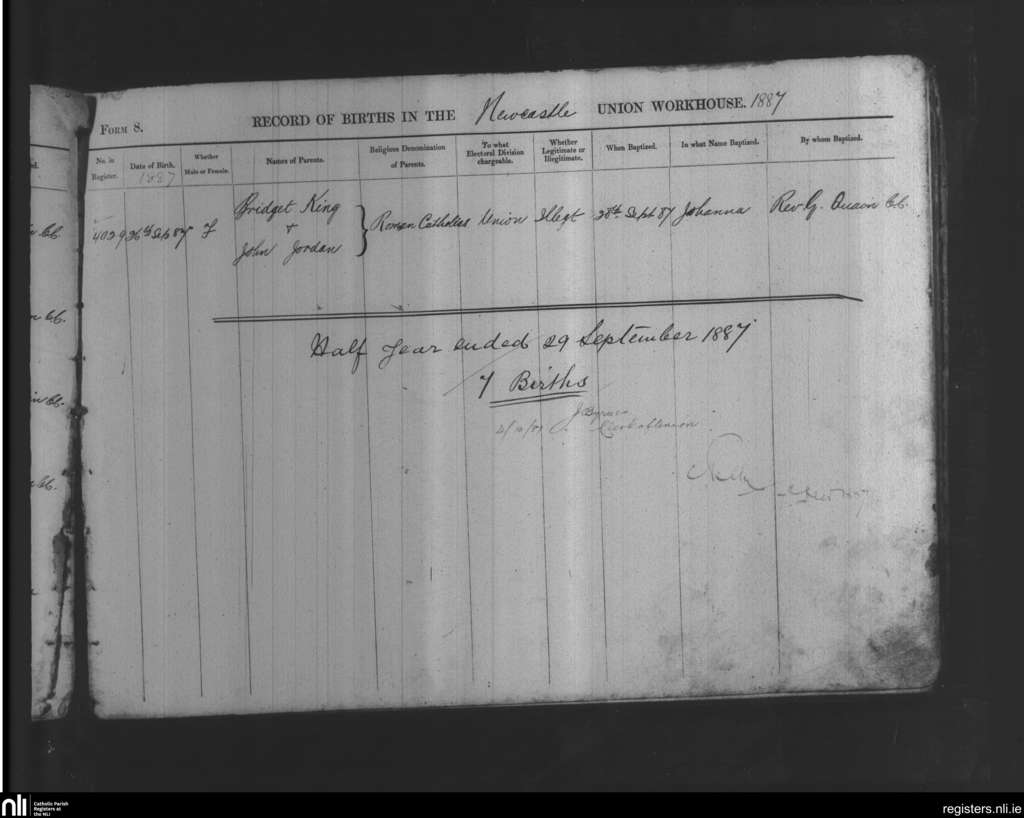 ed.
Cb.
Cb.
Cb.
Cb.
Form 8.
RECORD OF BIRTHS IN THE Newcastle UNION WORKHOUSE. 1887
No. in Register.
Date of Birth.
1887
Whether Male or Female.
Names of Parents.
Religious Denomination of Parents.
To what Electoral Division chargeable.
Whether Legitimate or Illegitimate.
When Baptized.
In what Name Baptized.
By whom Baptized.
4029 26th Sept 87 F Bridget King + John Jordan } Roman Catholics Union Illegt 28th Sept 87 Johanna Rev G. Cb.
Half Year ended 29 September 1887
7 Births
J Byrnes
Clerk of Union
nli
Catholic Parish
Registers at
the NLI
registers.nli.ie